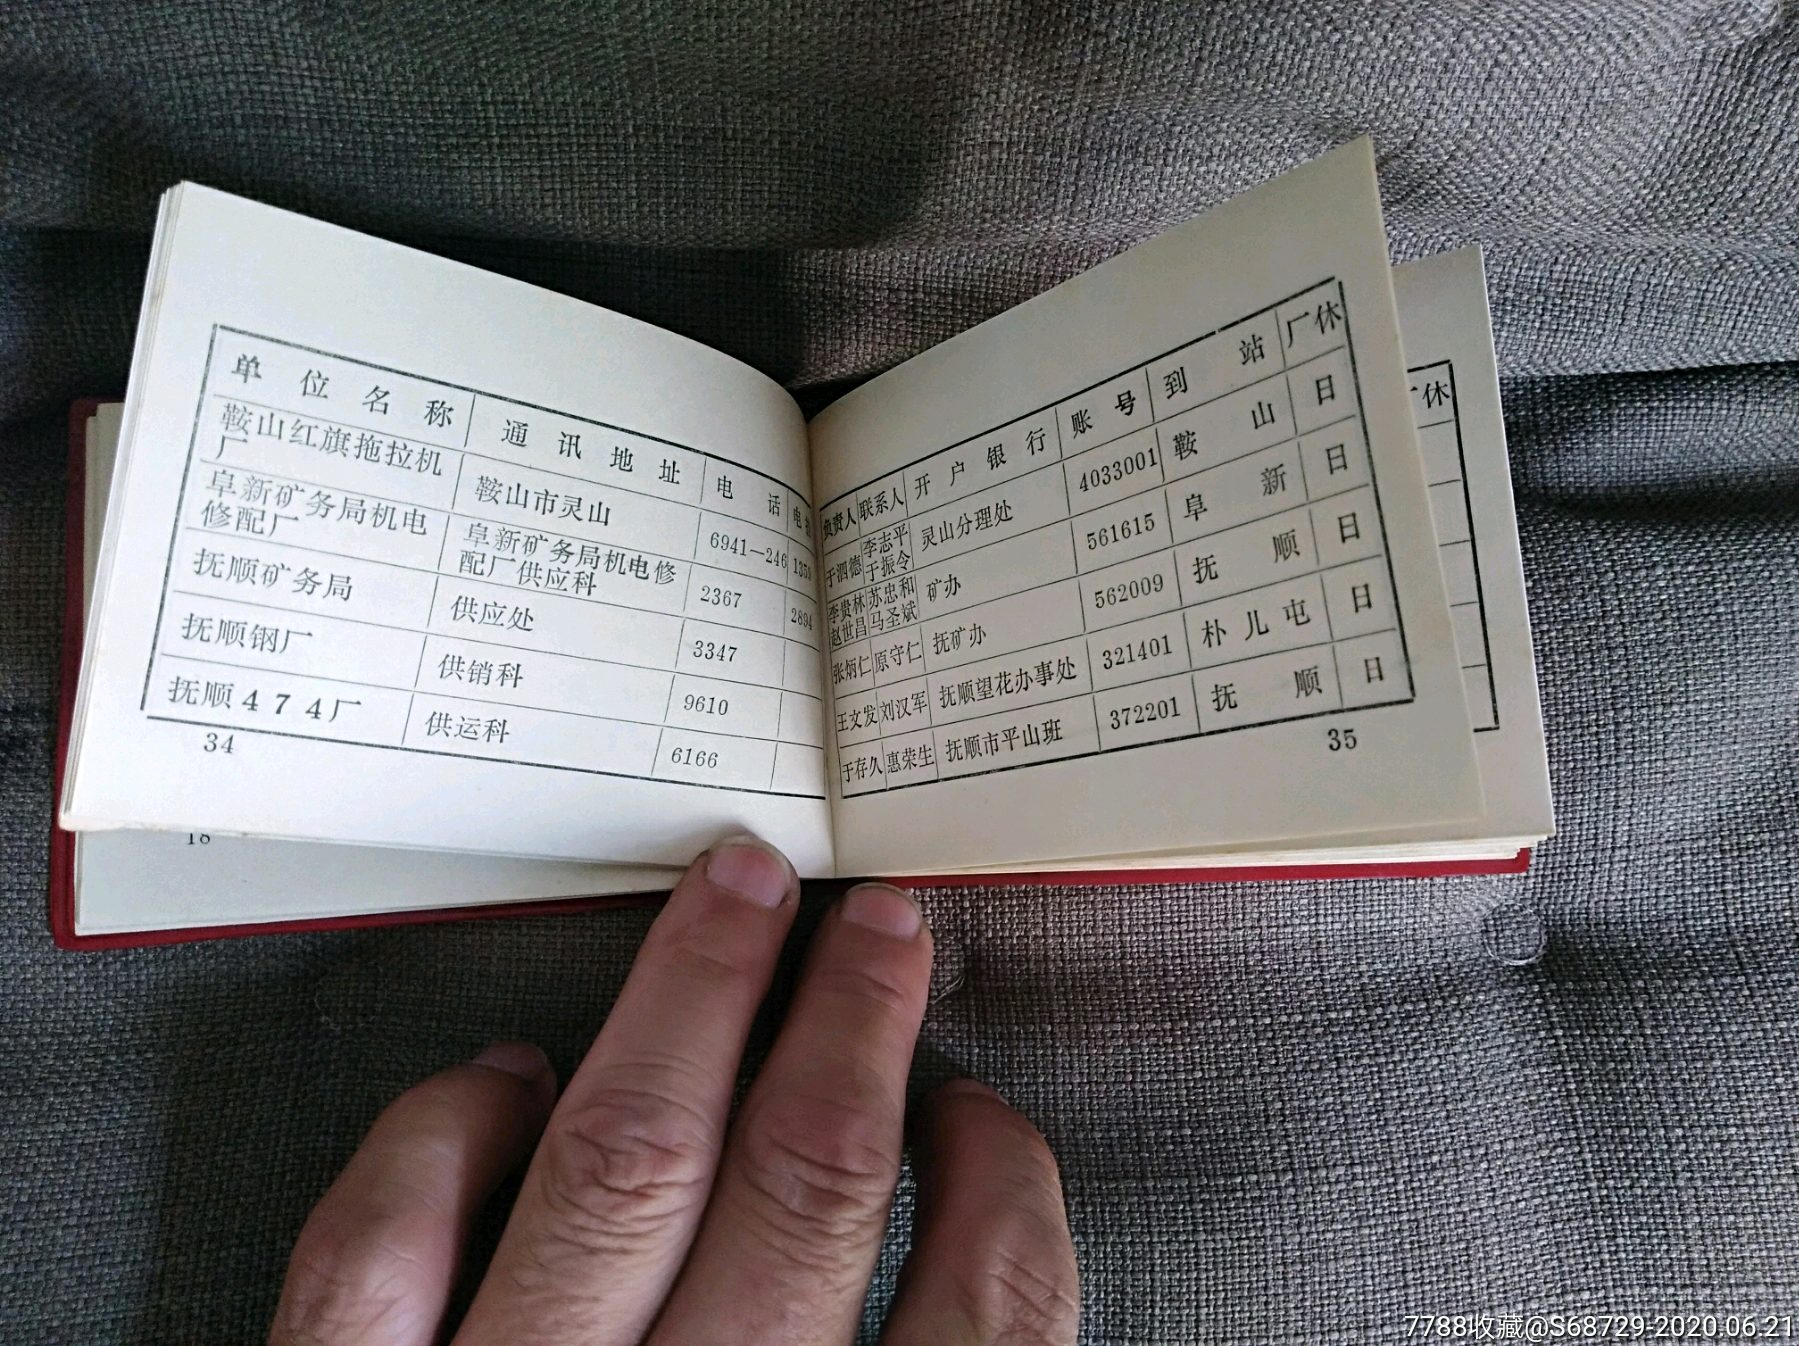 单位名称 通讯地址 电话 电
鞍山红旗拖拉机厂 鞍山市灵山 6941—246 1359
阜新矿务局机电修配厂 阜新矿务局机电修配厂供应科 2367 2894
抚顺矿务局 供应处 3347
抚顺钢厂 供销科 9610
抚顺474厂 供运科 6166
34
18
负责人 联系人 开户银行 账号 到站 厂休
于泗德 李志平 于振令 灵山分理处 4033001 鞍山 日
李贵林 赵世昌 苏忠和 马圣斌 矿办 561615 阜新 日
张炳仁 原守仁 抚矿办 562009 抚顺 日
王文发 刘汉军 抚顺望花办事处 321401 朴儿屯 日
于存久 惠荣生 抚顺市平山班 372201 抚顺 日
35
厂休
7788收藏@S68729 2020.06.21